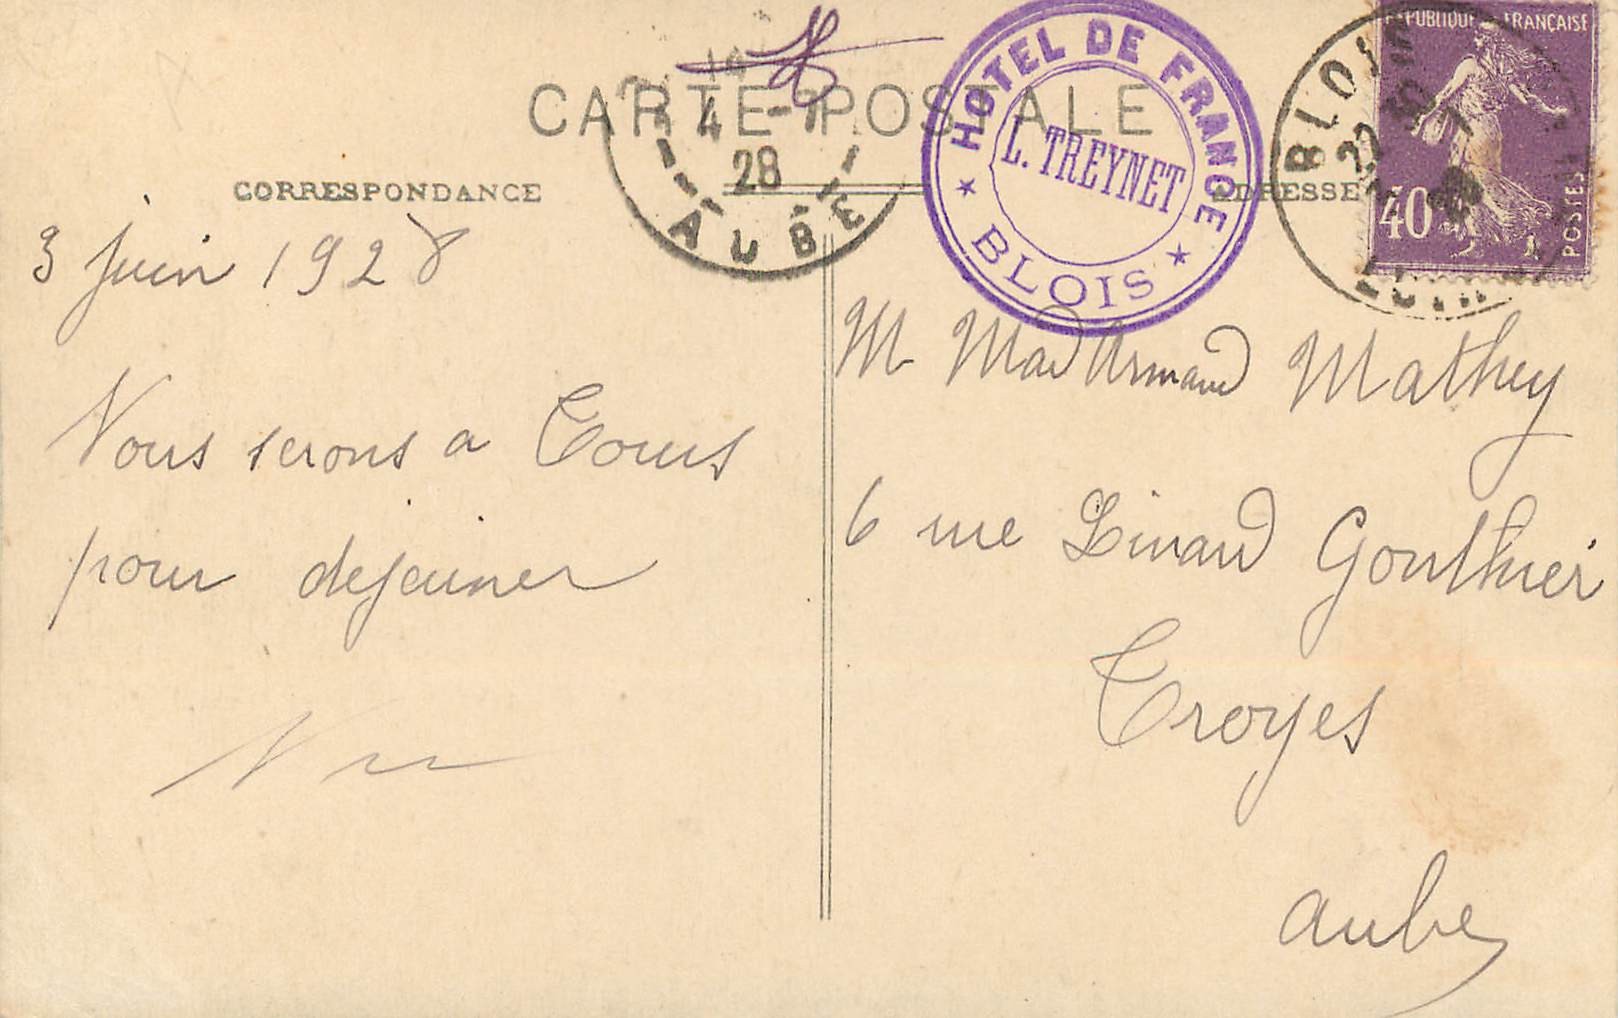 CARTE POSTALE
CORRESPONDANCE
ADRESSE
4 -
28
AUBE
HOTEL DE FRANCE
L. TREYNET
★ BLOIS ★
BLOIS
22
REPUBLIQUE FRANÇAISE
40
POSTES
3 juin 1928
Nous serons a Tours
pour dejeuner
M Mad Armand Mathey
6 rue Linard Gonthier
Troyes
Aube